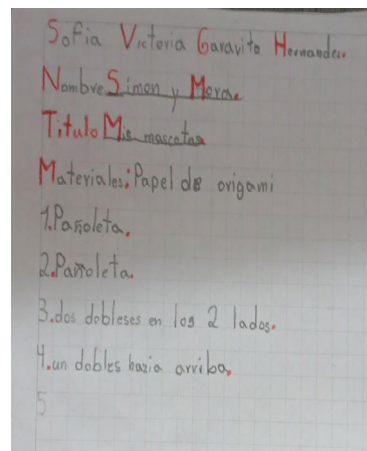 Sofia Victoria Garavito Hernandez.
Nombre Simon y Mora.
Titulo Mis mascotas
Materiales: Papel de origami
1. Pañoleta.
2. Pañoleta.
3. dos dobleses en los 2 lados.
4. un dobles hazia arriba.
5